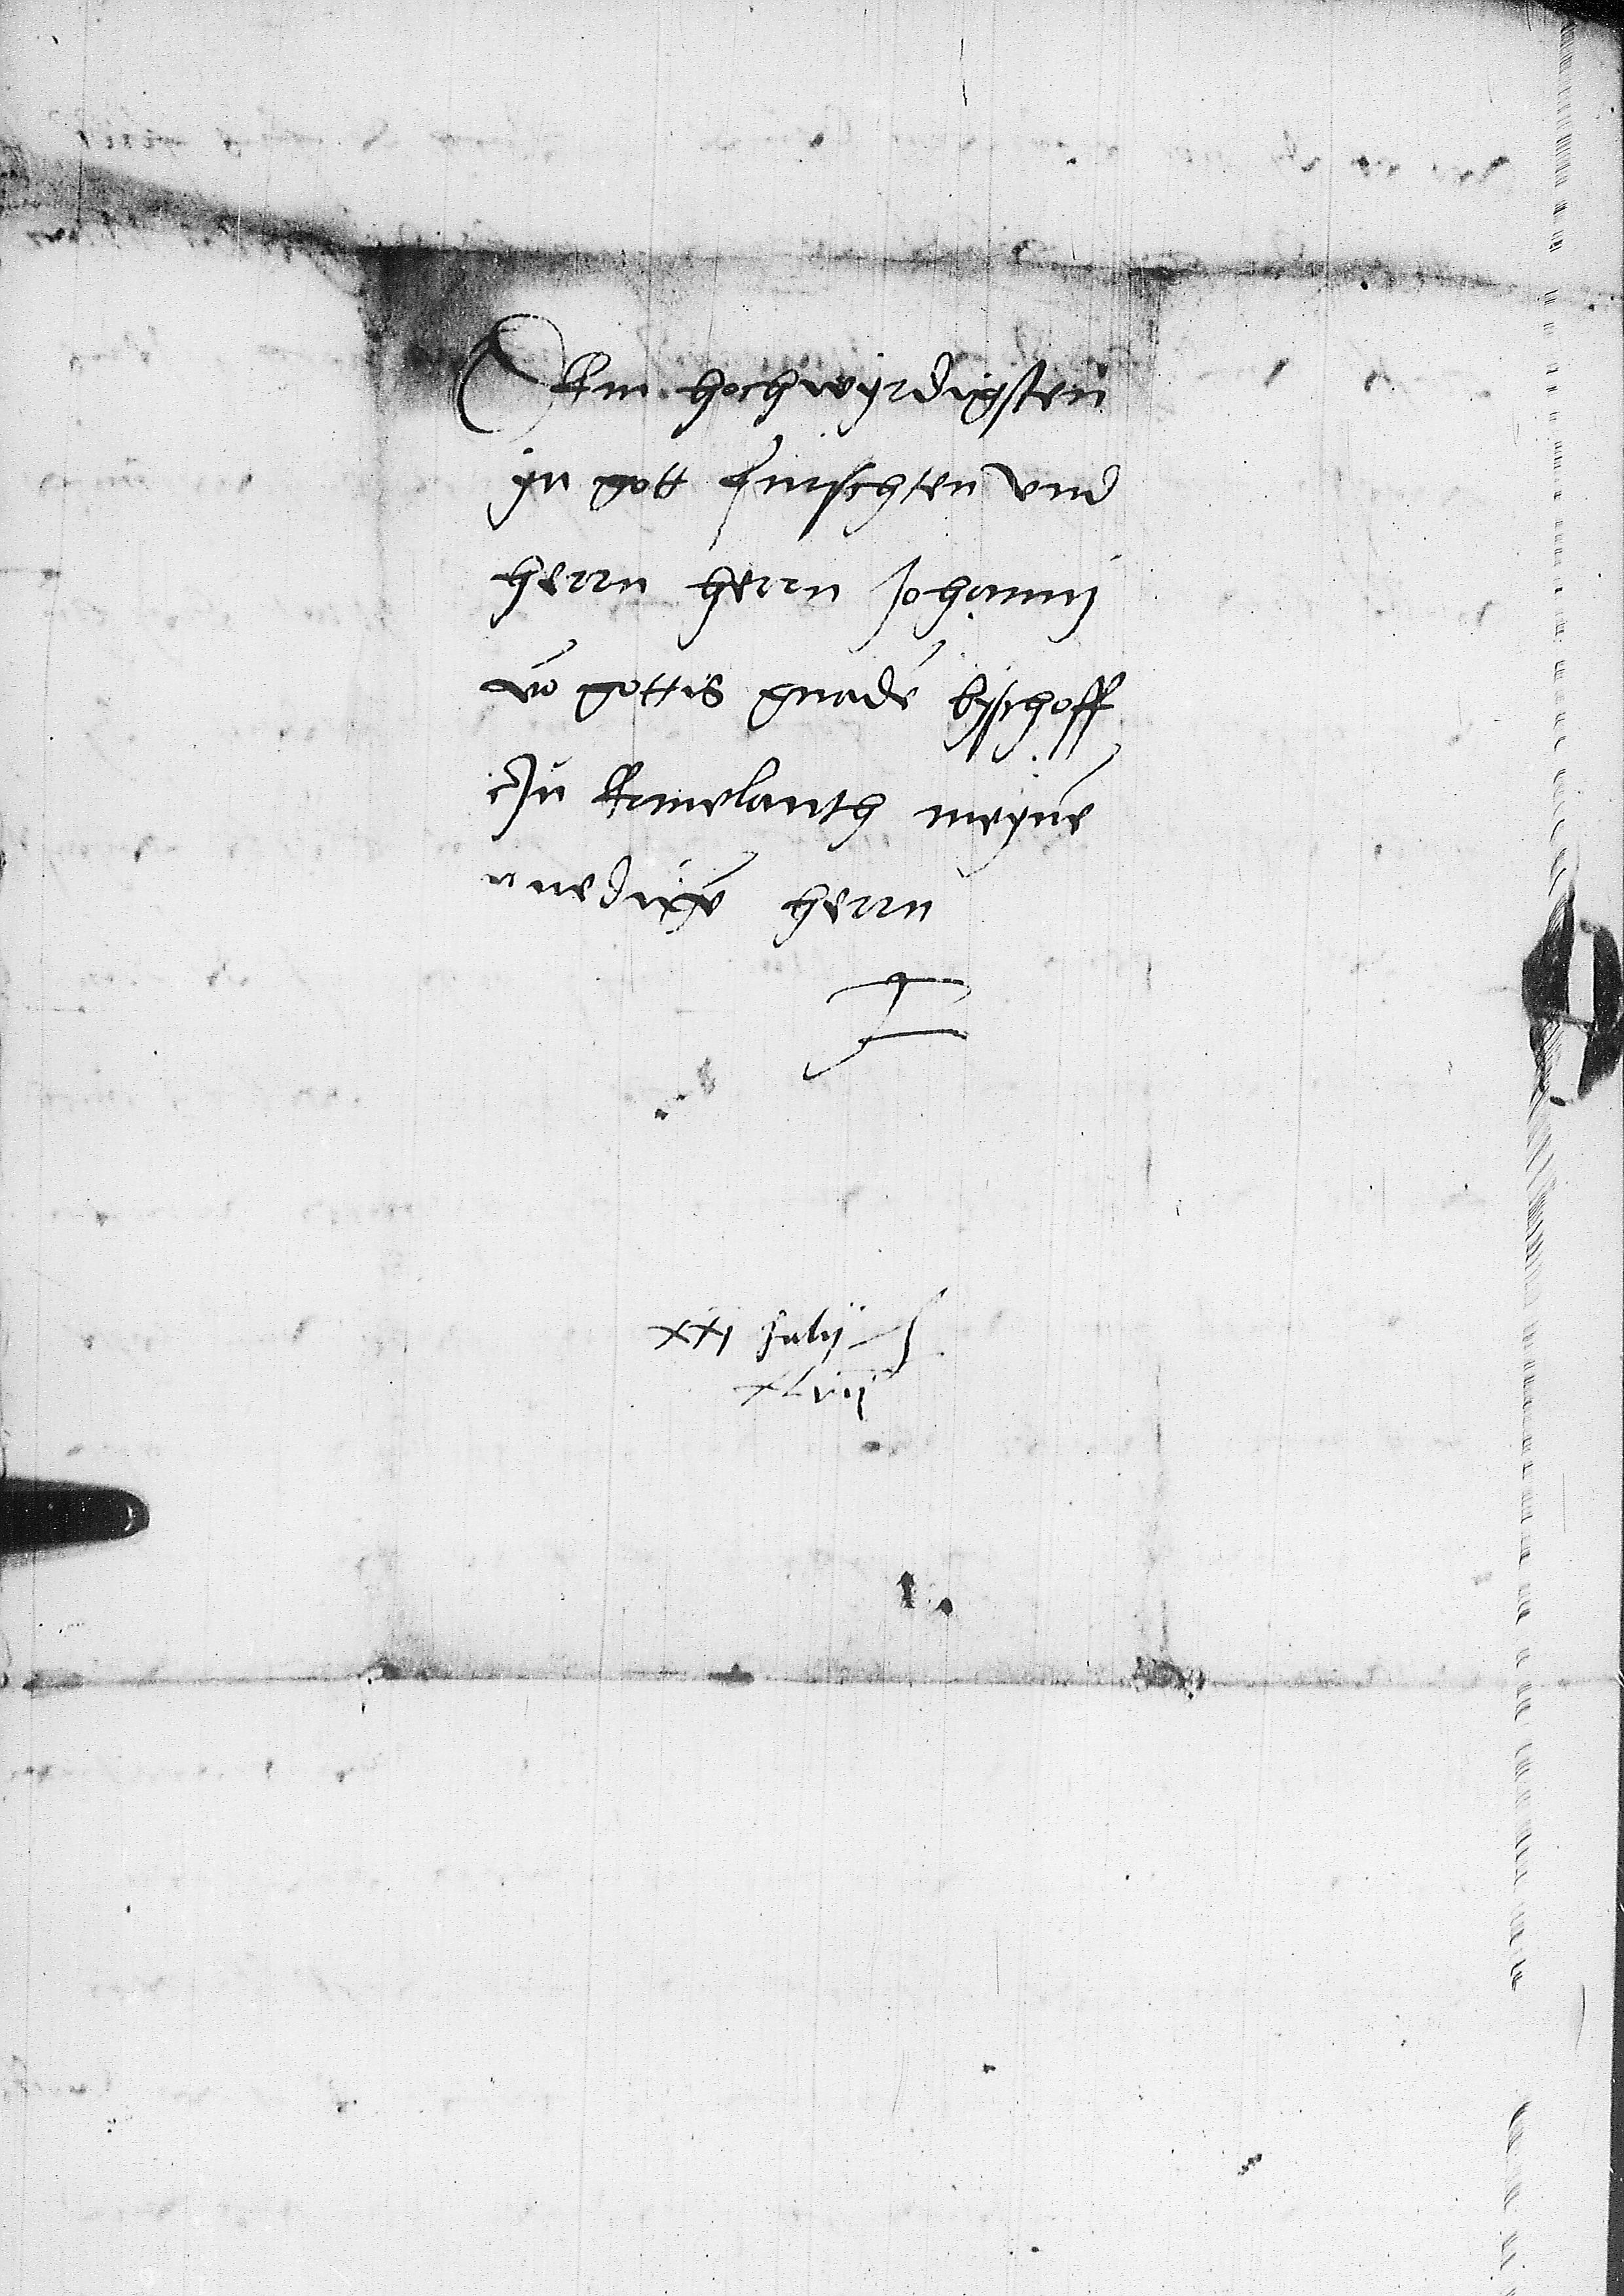 Dem hochwyrdigsten
yn gott furschten vnd
herrn herrn Johanni
vō gottis gnadē byschoff
czu Ermelanth meynē
gnedigē herrn
xxj Julij
xlvij